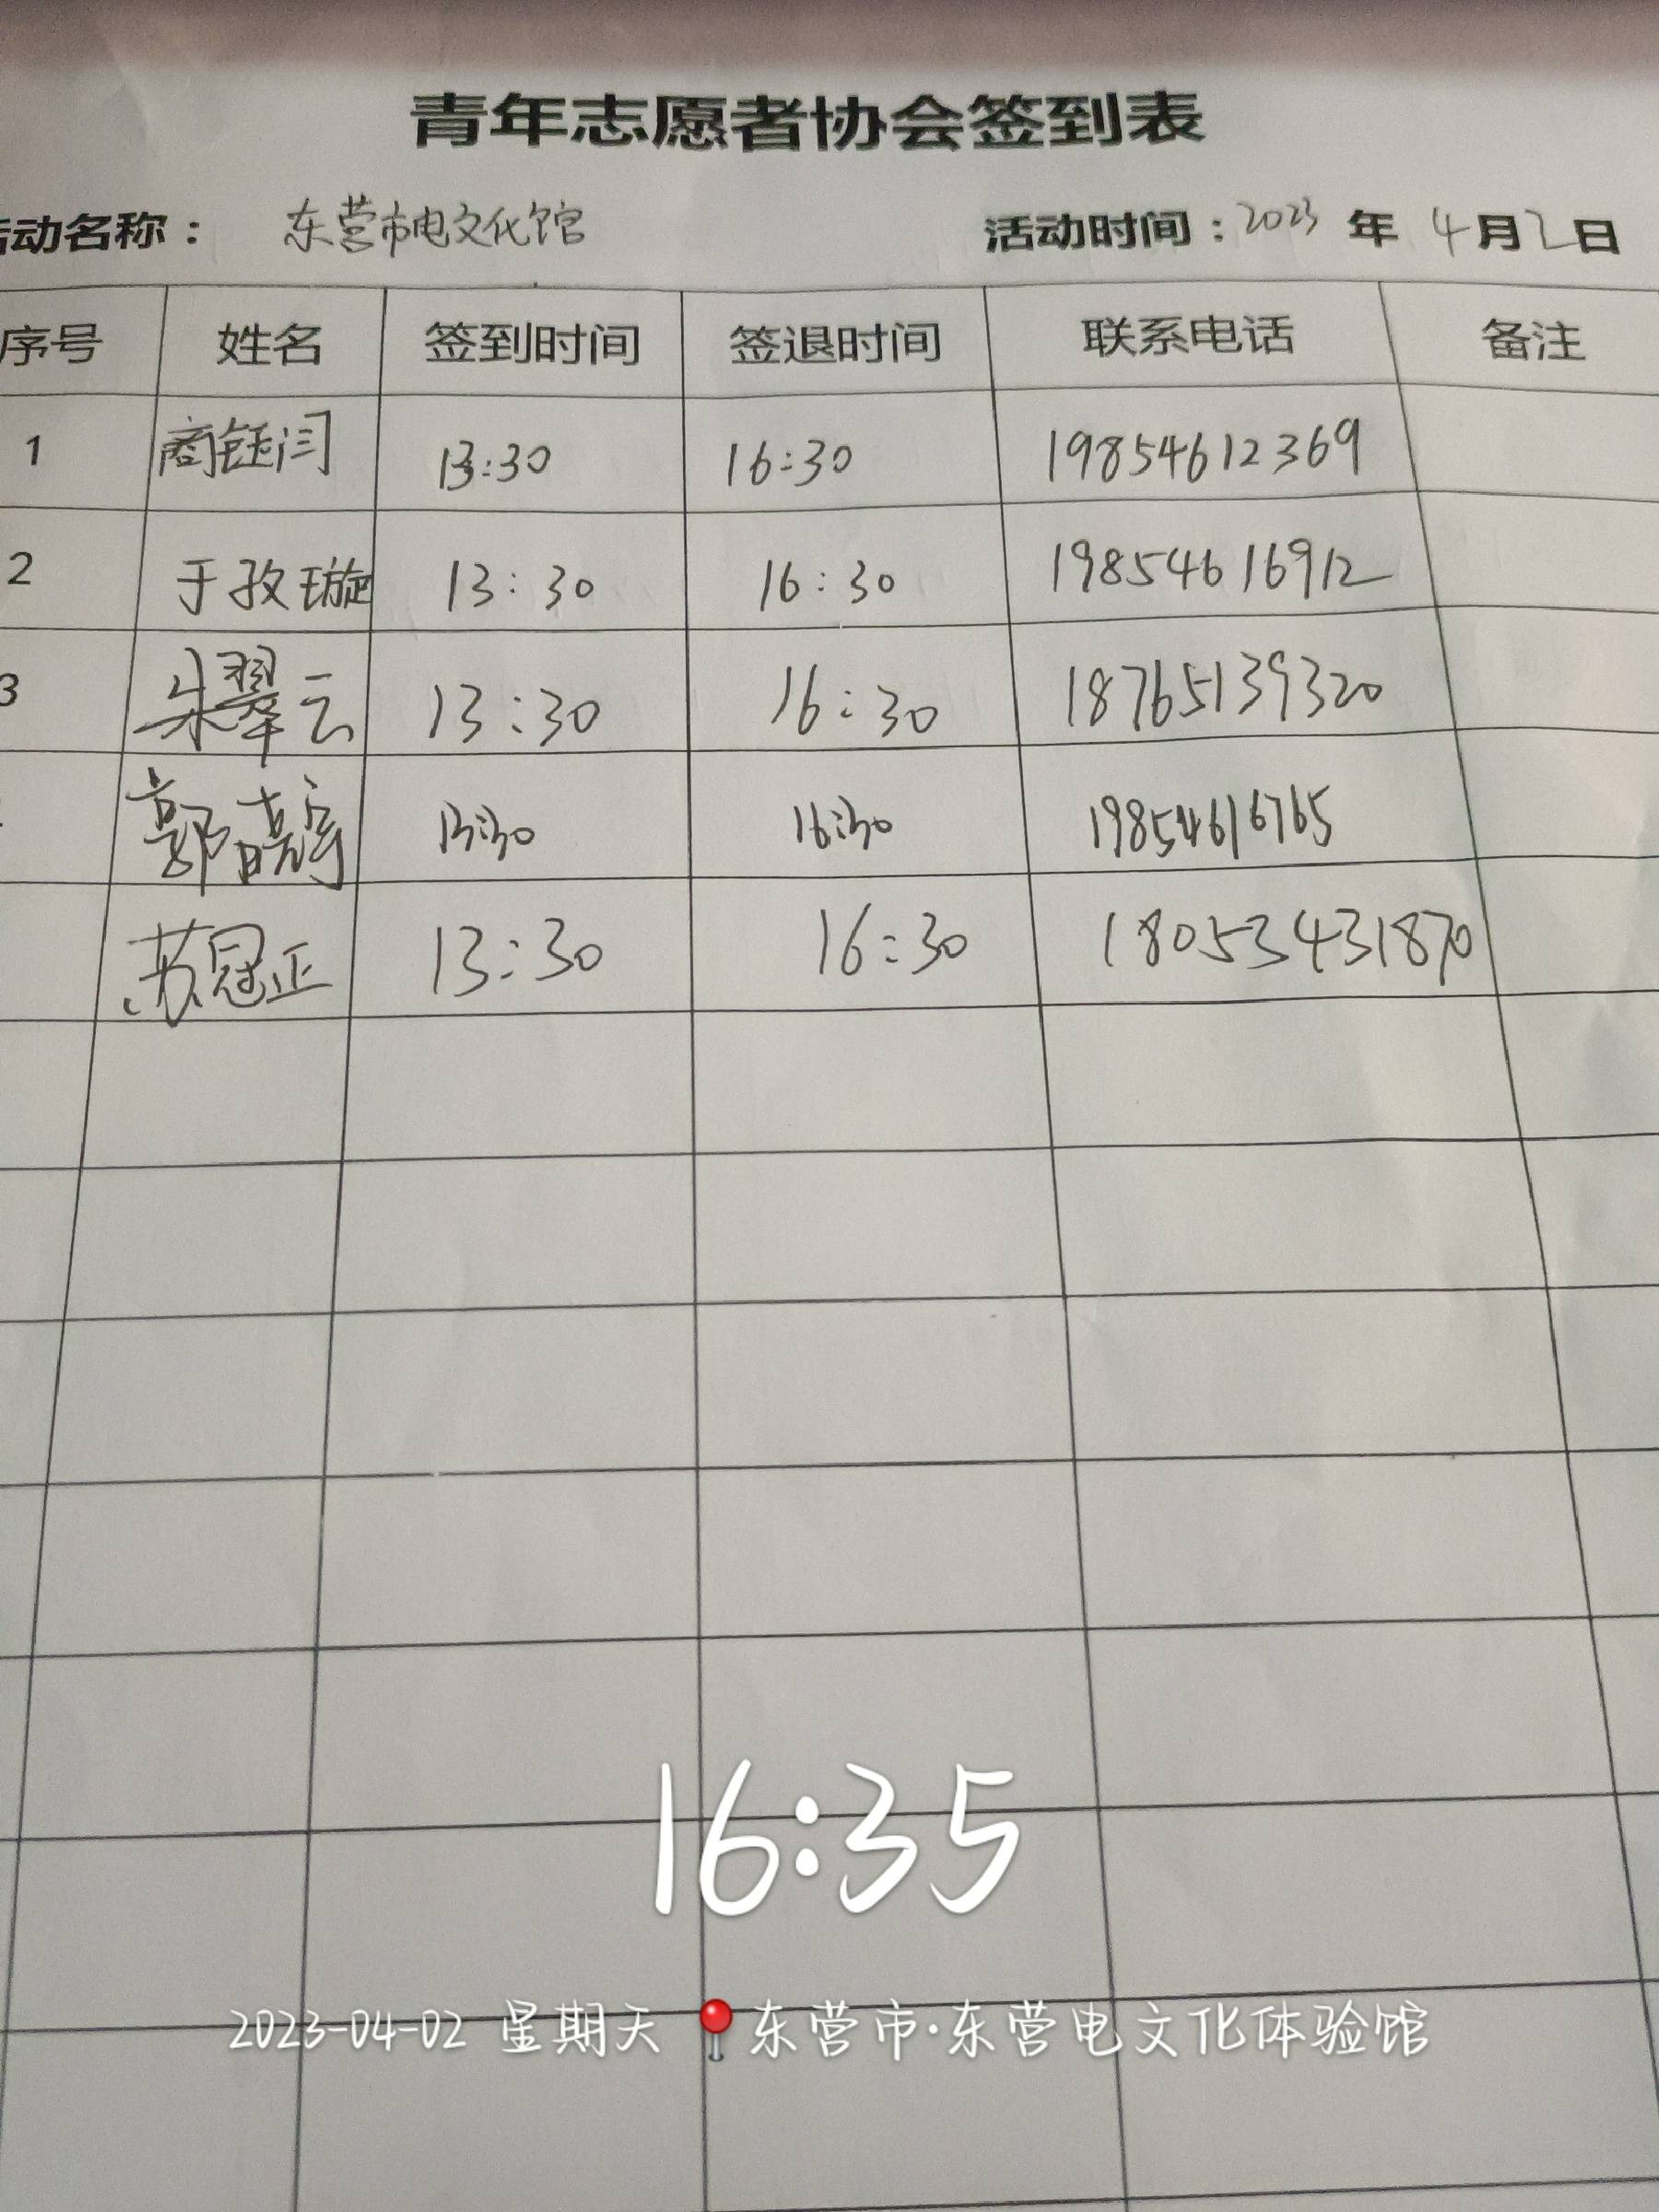 青年志愿者协会签到表
活动名称： 东营市电文化馆 活动时间：2023 年 4月2日
序号 姓名 签到时间 签退时间 联系电话 备注
1 商钰闫 13:30 16:30 19854612369
2 于孜璇 13:30 16:30 19854616912
3 朱翠云 13:30 16:30 18765139320
郭晓宇 13:30 16:30 19854616765
苏冠正 13:30 16:30 18053431870
16:35
2023-04-02 星期天 东营市·东营电文化体验馆